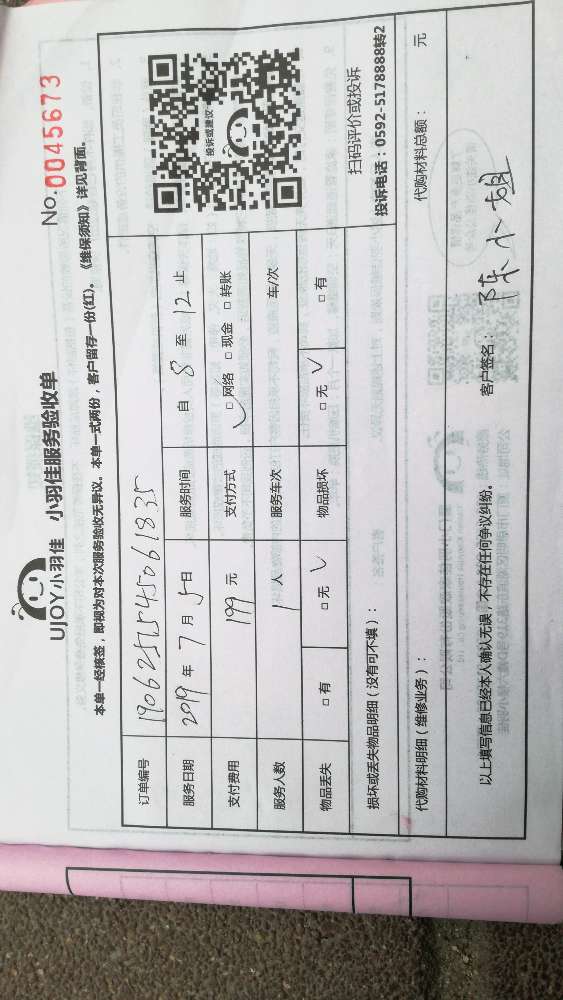 UJOY小羽佳 小羽佳服务验收单
No. 0045673
本单一经核签，即视为对本次服务验收无异议。本单一式两份，客户留存一份(红)。《维保须知》详见背面。
订单编号 1906251545061835
服务日期 2019年7月5日 服务时间 自 8 至 12 止
支付费用 199 元 支付方式 □网络 □现金 □转账
服务人数 1 人 服务车次 车/次
物品丢失 □有 □无 √ 物品损坏 □无 √ □有
投诉或建议
扫码评价或投诉
投诉电话：0592-5178888转2
损坏或丢失物品明细（没有可不填）：
代购材料明细（维修业务）： 代购材料总额： 元
以上填写信息已经本人确认无误，不存在任何争议纠纷。 客户签名： 陈小姐